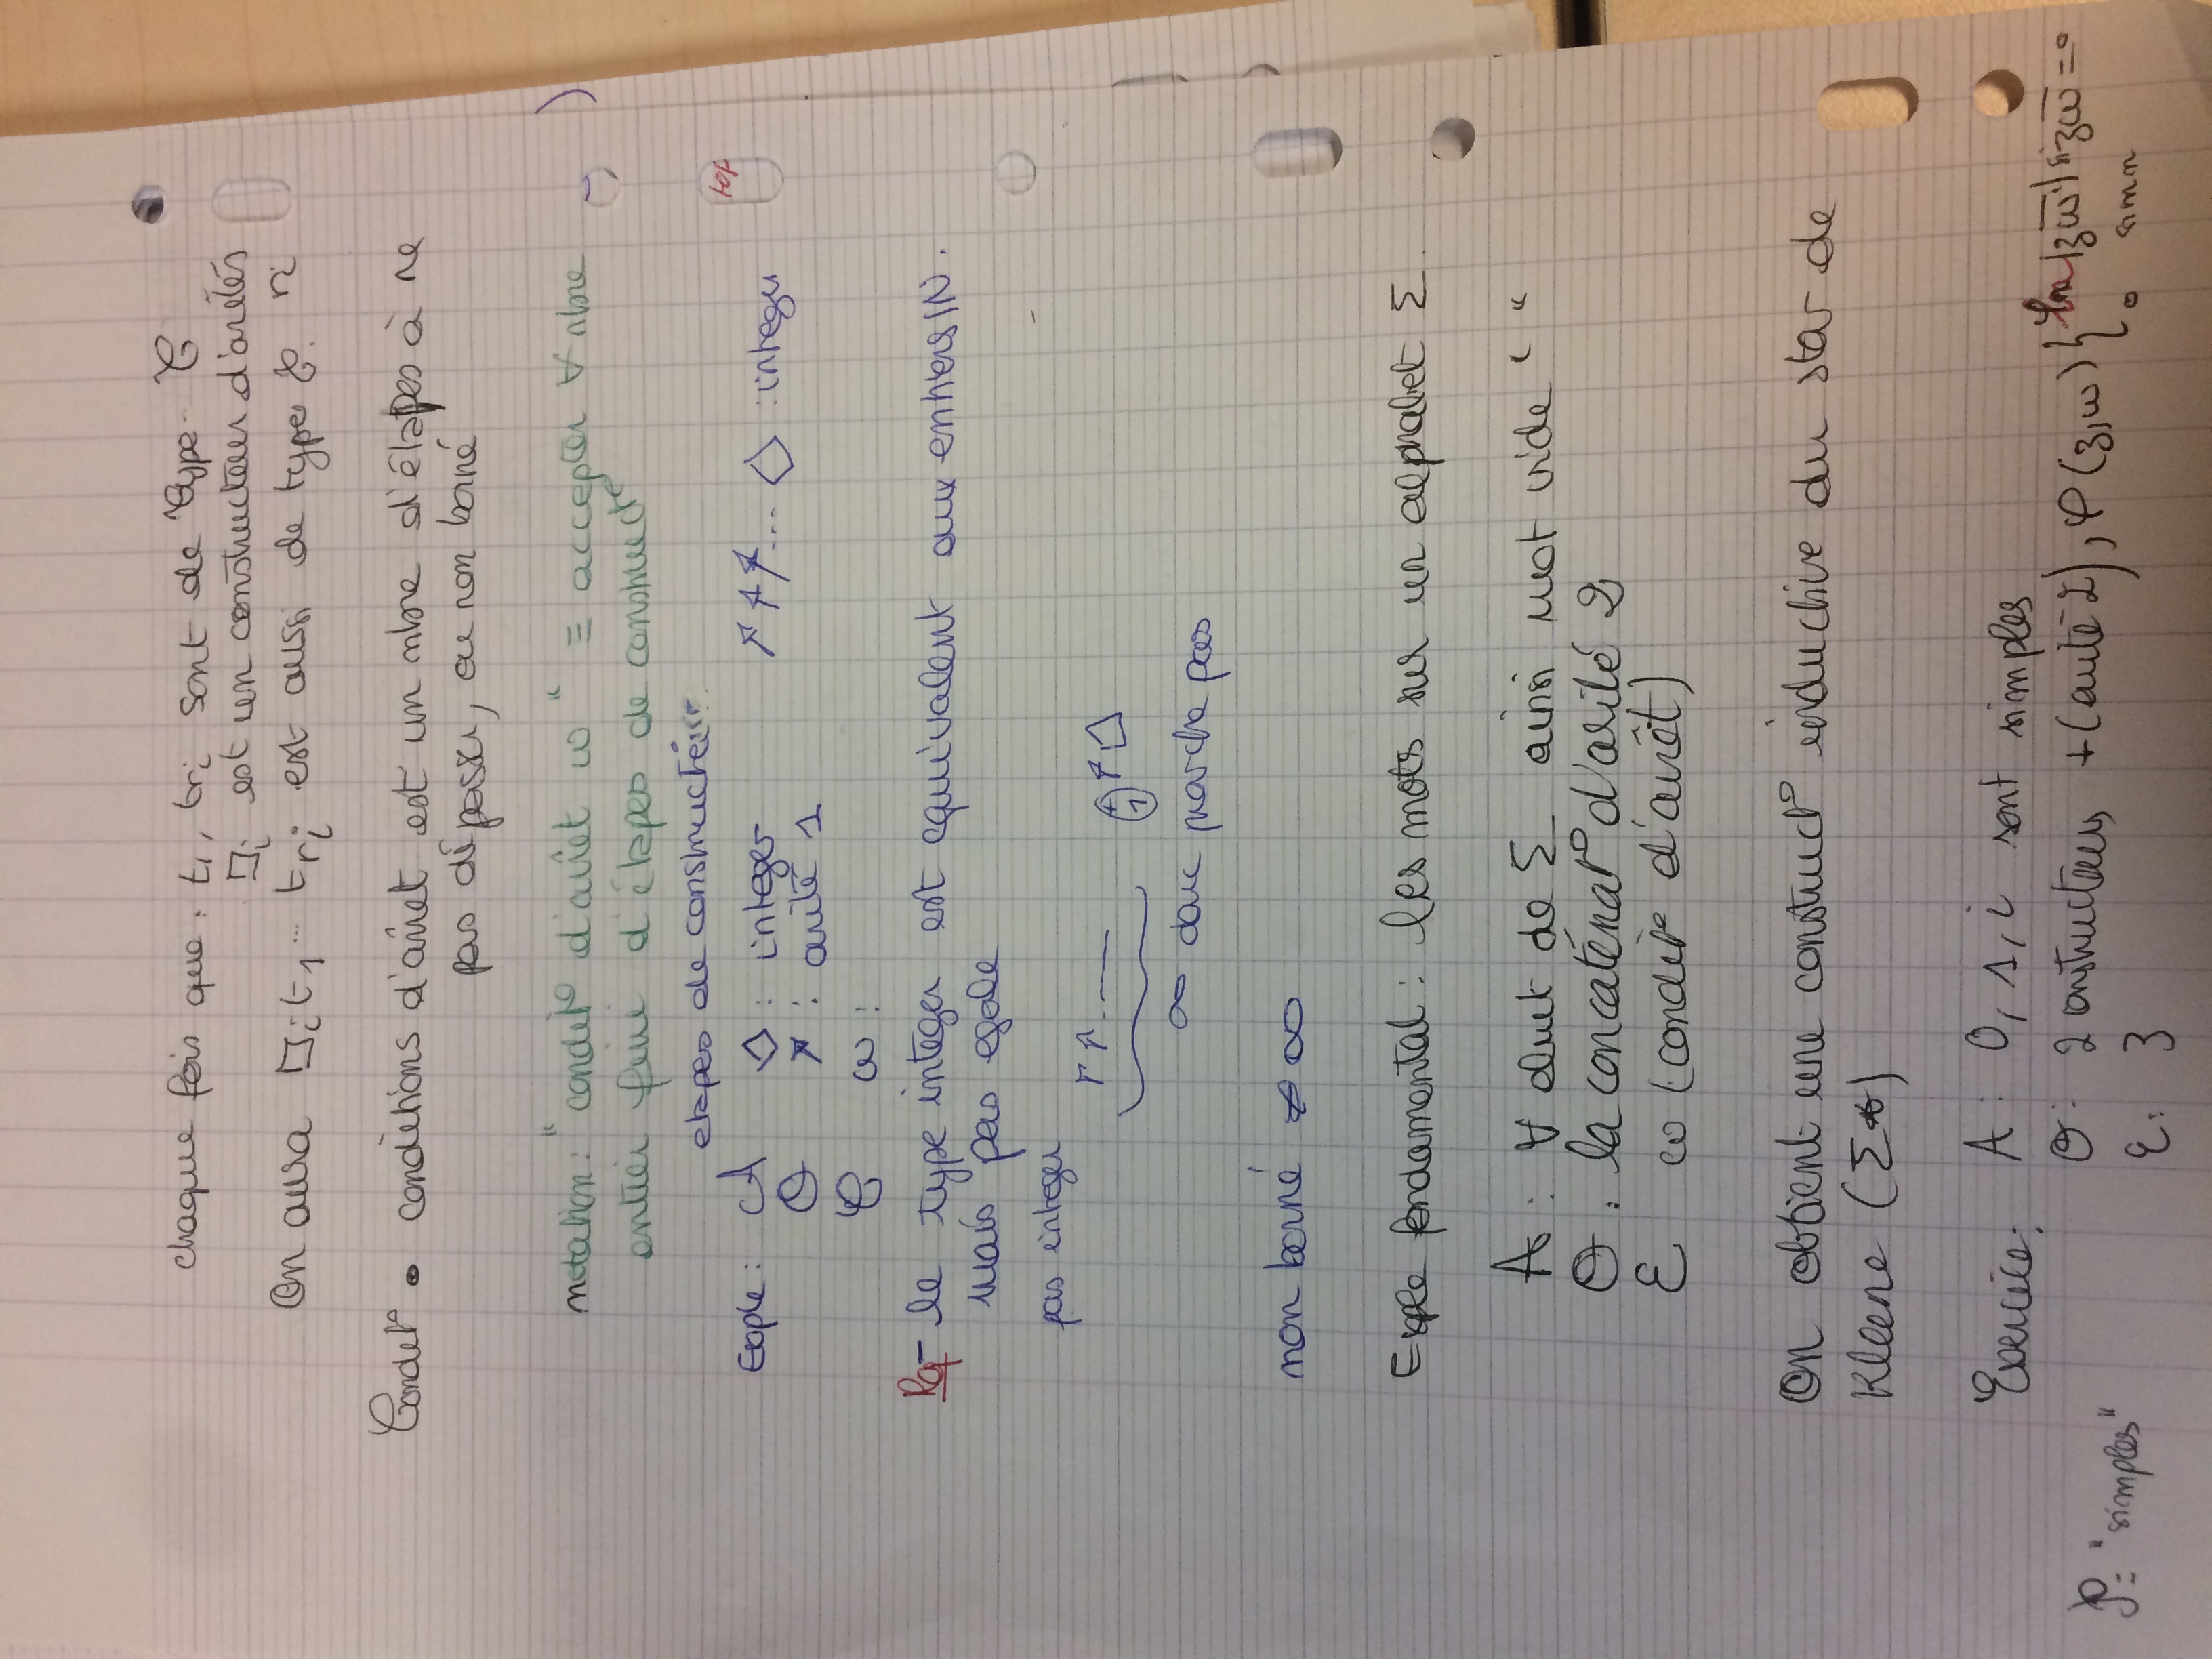 chaque fois que : t₁, tri sont de type ℭ
ℷi est un constructeur d'arités
On aura ℷi t1 ... tri est aussi de type ℭ. ri
Condit° • conditions d'arrêt est un nbre d'étapes à ne
pas dépasser, ou non borné
notation: "condit° d'arrêt ω" ≡ accepter ∀ nbre
entier fini d'étapes de construct°
etapes de construct
Exple: A ⬠ : integer ↗↗↗... ⬠ : integer
O ↗ : arité 1
C ω :
Rq- le type integer est equivalent aux entiers IN.
mais pas egale
pas integer
↗↗.—— ↗⬠
+
1
∞ donc marche pas
non borné ≠ ∞
Exple fondamental : les mots sur un alphabet Σ.
A : ∀ elmet de Σ ainsi mot vide " "
O : la concaténat° d'arité 2
E ω (condit° d'arrêt)
On obtient une construct° inductive du star de
Kleene (Σ*)
Exercice: A : 0, 1, i sont simples
O : 2 onstructeurs +(arité 2), φ(z,ω) { |zω̄| si zω̄ = 0
0 sinn
P= "simples"
E: 3
top